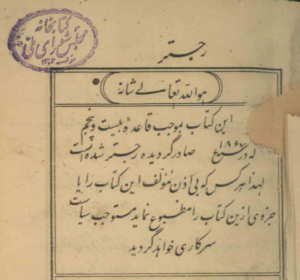 کتابخانه
مجلس شورای ملی
رجستر
هو الله تعالی شانه
این کتاب بموجب قاعده بیست و پنجم
که در ۱۸۶۷ع صادر گردیده رجستر شده است
لهذا هر کس که بی اذن مؤلف این کتاب را یا
جزوی ازین کتاب را مطبوع نماید مستوجب سیاست
سرکاری خواهد گردید